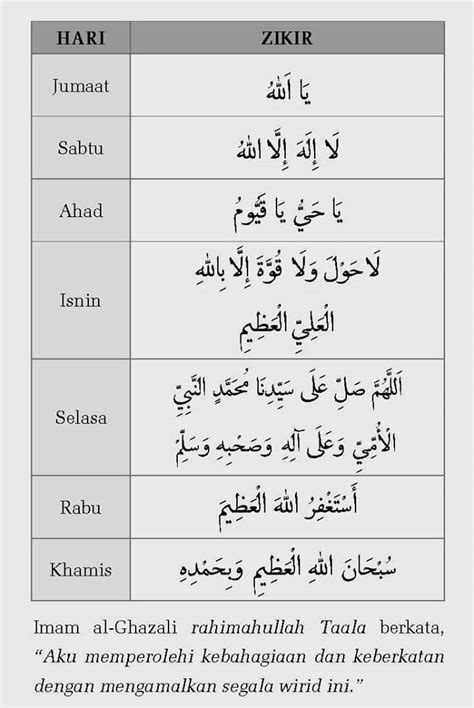 HARI ZIKIR
Jumaat يَا اَللهُ
Sabtu لَا إِلَهَ إِلَّا اللهُ
Ahad يَا حَيُّ يَا قَيُّومُ
Isnin لَا حَوْلَ وَلَا قُوَّةَ إِلَّا بِاللهِ
الْعَلِيِّ الْعَظِيمِ
Selasa اَللَّهُمَّ صَلِّ عَلَى سَيِّدِنَا مُحَمَّدٍ النَّبِيِّ
الْأُمِّيِّ وَعَلَى آلِهِ وَصَحْبِهِ وَسَلِّمْ
Rabu أَسْتَغْفِرُ اللهَ الْعَظِيمَ
Khamis سُبْحَانَ اللهِ الْعَظِيمِ وَبِحَمْدِهِ
Imam al-Ghazali rahimahullah Taala berkata,
“Aku memperolehi kebahagiaan dan keberkatan
dengan mengamalkan segala wirid ini.”